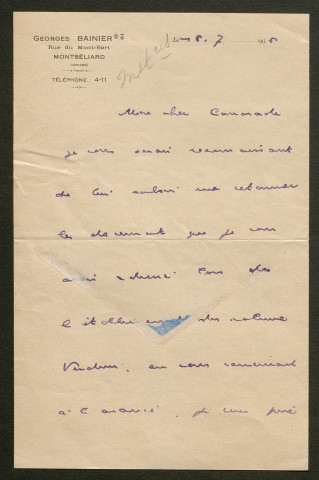 GEORGES BAINIER
Rue du Mont-Bart
MONTBÉLIARD
(DOUBS)
TÉLÉPHONE : 4-11
8. 7 19
Mon cher Camarade
je vous serais reconnaissant
de bien vouloir me retourner
les documents que je vous
avais adressé lors de
l'établissement du volume
Verdun, en vous remerciant
à l'avance, je vous prie